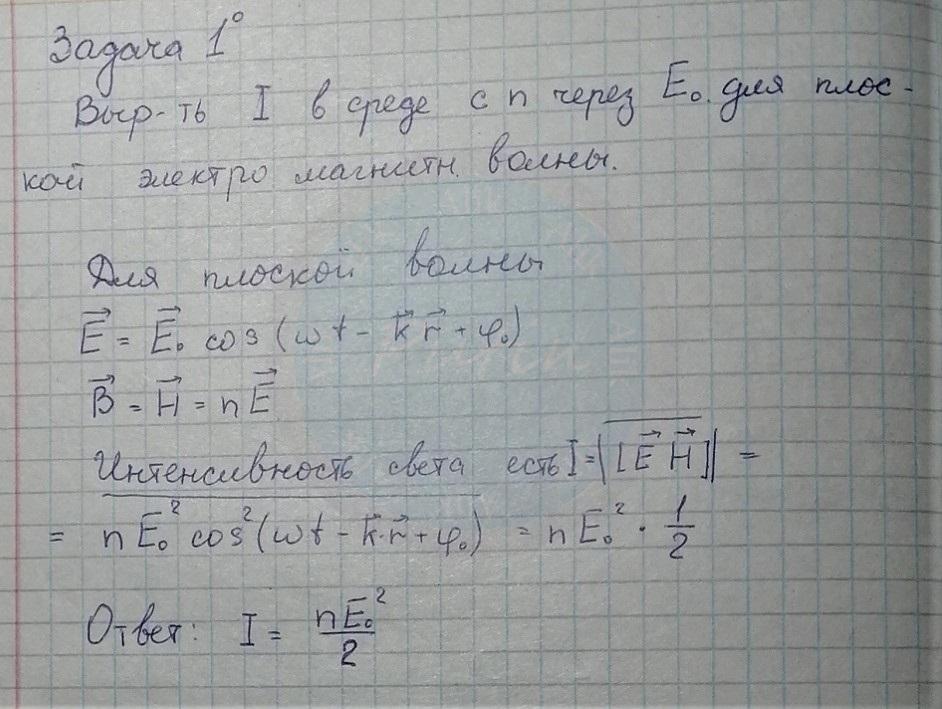 Задача 1°
Выр-ть I в среде с n через E₀ для плос-
кой электро магнитн. волны.
Для плоской волны
E⃗ = E⃗₀ cos (ωt - k⃗r⃗ + φ₀)
B⃗ = H⃗ = nE⃗
Интенсивность света есть I = |[E⃗ H⃗]| =
= nE₀² cos²(ωt - k⃗·r⃗ + φ₀) = nE₀² · 1/2
Ответ: I = nE₀²/2